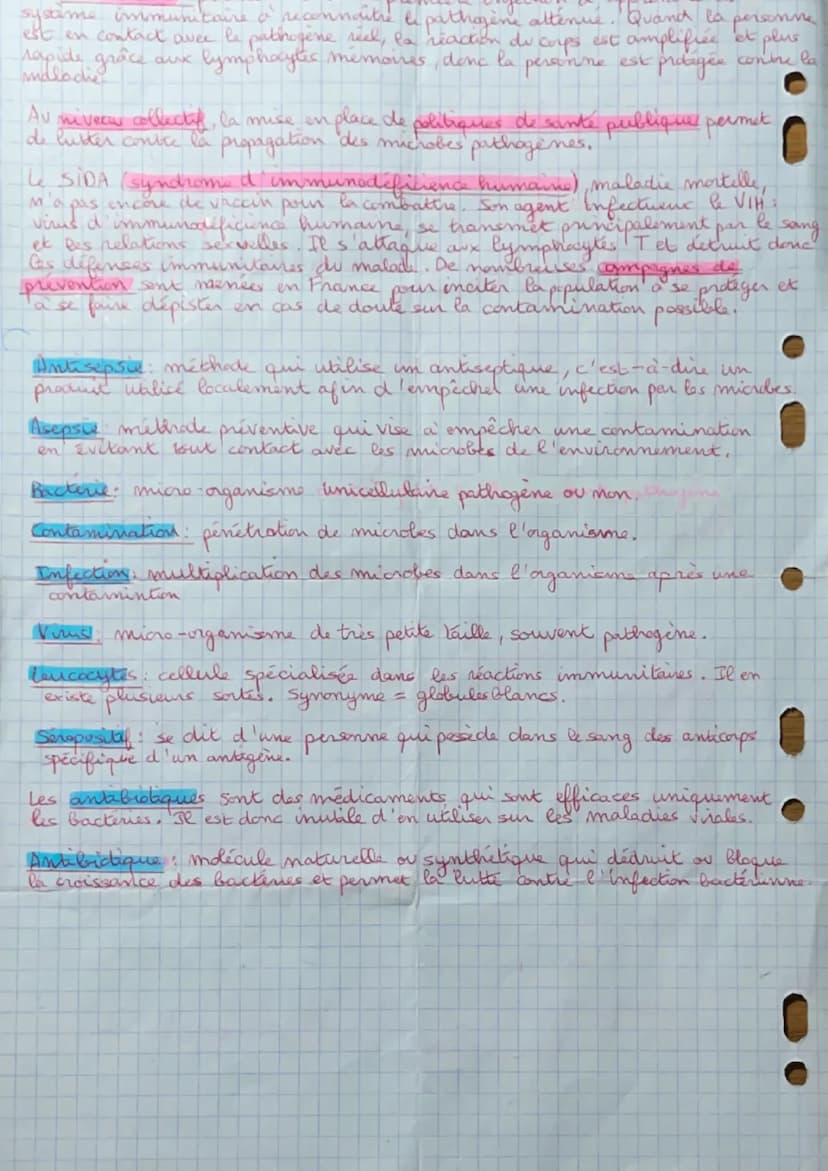 système immunitaire à reconnaître le pathogène atténué. Quand la personne
est en contact avec le pathogène réel, la réaction du corps est amplifiée et plus
rapide grâce aux lymphocytes mémoires, donc la personne est protégée contre la
maladie.
Au niveau collectif, la mise en place de politiques de santé publique permet
de lutter contre la propagation des microbes pathogènes.
Le SIDA (syndrome d'immunodéficience humaine), maladie mortelle,
n'a pas encore de vaccin pour la combattre. Son agent infectueux le VIH :
virus d'immunodéficience humaine, se transmet principalement par le sang
et les relations sexuelles. Il s'attaque aux lymphocytes T et détruit donc
les défenses immunitaires du malade. De nombreuses campagnes de
prévention sont menées en France pour inciter la population à se protéger et
à se faire dépister en cas de doute sur la contamination possible.
Antisepsie : méthode qui utilise un antiseptique, c'est-à-dire un
produit utilisé localement afin d'empêchel une infection par les microbes.
Asepsie : méthode préventive qui vise à empêcher une contamination
en évitant tout contact avec les microbes de l'environnement.
Bactérie : micro-organisme unicellulaire pathogène ou non.
Contamination : pénétration de microbes dans l'organisme.
Infection : multiplication des microbes dans l'organisme après une
contamintion
Virus : micro-organisme de très petite taille, souvent pathogène.
Leucocytes : cellule spécialisée dans les réactions immunitaires. Il en
existe plusieurs sortes. Synonyme = globules blancs.
Séropositif : se dit d'une personne qui posède dans le sang des anticorps
spécifique d'un antigène.
Les antibiotiques sont des médicaments qui sont efficaces uniquement
les bactéries. Il est donc inutile d'en utiliser sur les maladies virales.
Antibiotique : molécule naturelle ou synthétique qui détruit ou bloque
la croissance des bactéries et permet la lutte contre l'infection bactérienne.